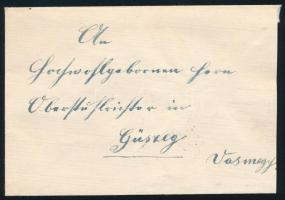 An
Hochwohlgebornen Herrn
Oberstuhlrichter in
Güszeg
Vasmegye